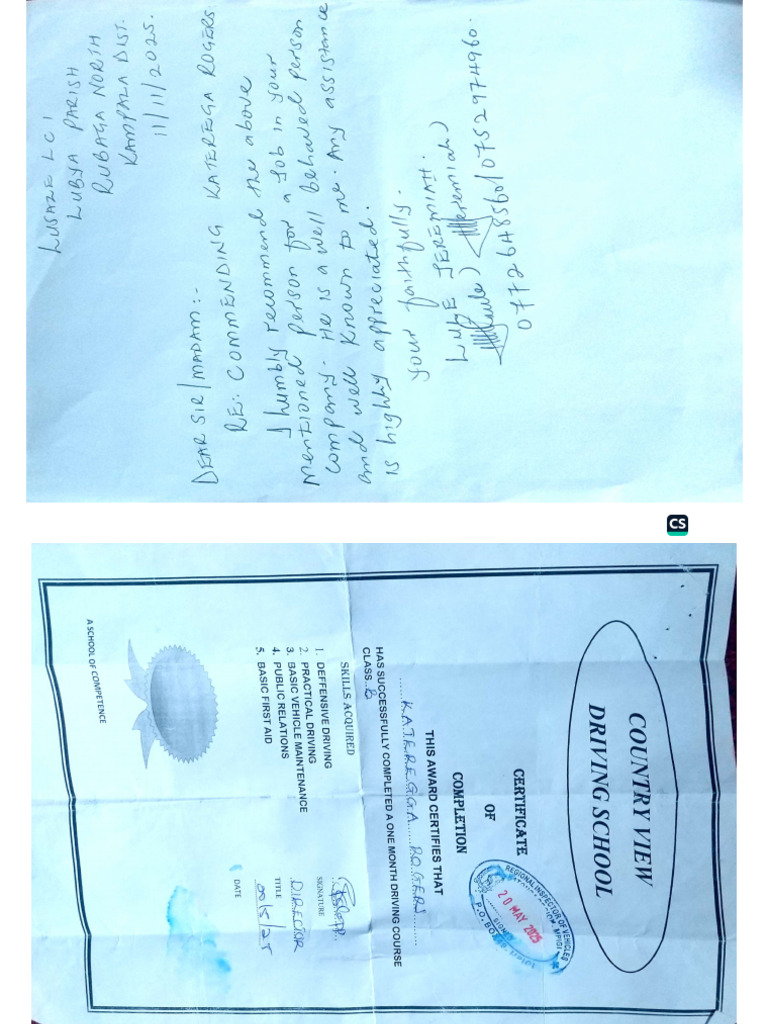 LUSAZE LC 1
LUBYA PARISH
RUBAGA NORTH
KAMPALA DIST.
11/11/2025.
DEAR SIR/MADAM:-
RE: COMMENDING KATEREGA ROGERS
I humbly recommend the above
mentioned person for a job in your
company. He is a well behaved person
and well known to me. Any assistance
is highly appreciated.
your faithfully.
LULE JEREMIAH.
0772648560/0752974960.
CS
COUNTRY VIEW
DRIVING SCHOOL
CERTIFICATE
OF
COMPLETION
REGIONAL INSPECTOR OF VEHICLES
MPIGI
20 MAY 2025
SIGN
P.O.BO
THIS AWARD CERTIFIES THAT
KATEREGGA ROGERS
HAS SUCCESSFULLY COMPLETED A ONE MONTH DRIVING COURSE
CLASS B
SKILLS ACQUIRED
1. DEFFENSIVE DRIVING
2. PRACTICAL DRIVING
3. BASIC VEHICLE MAINTENANCE
4. PUBLIC RELATIONS
5. BASIC FIRST AID
SIGNATURE
DIRECTOR
TITLE
DATE
A SCHOOL OF COMPETENCE